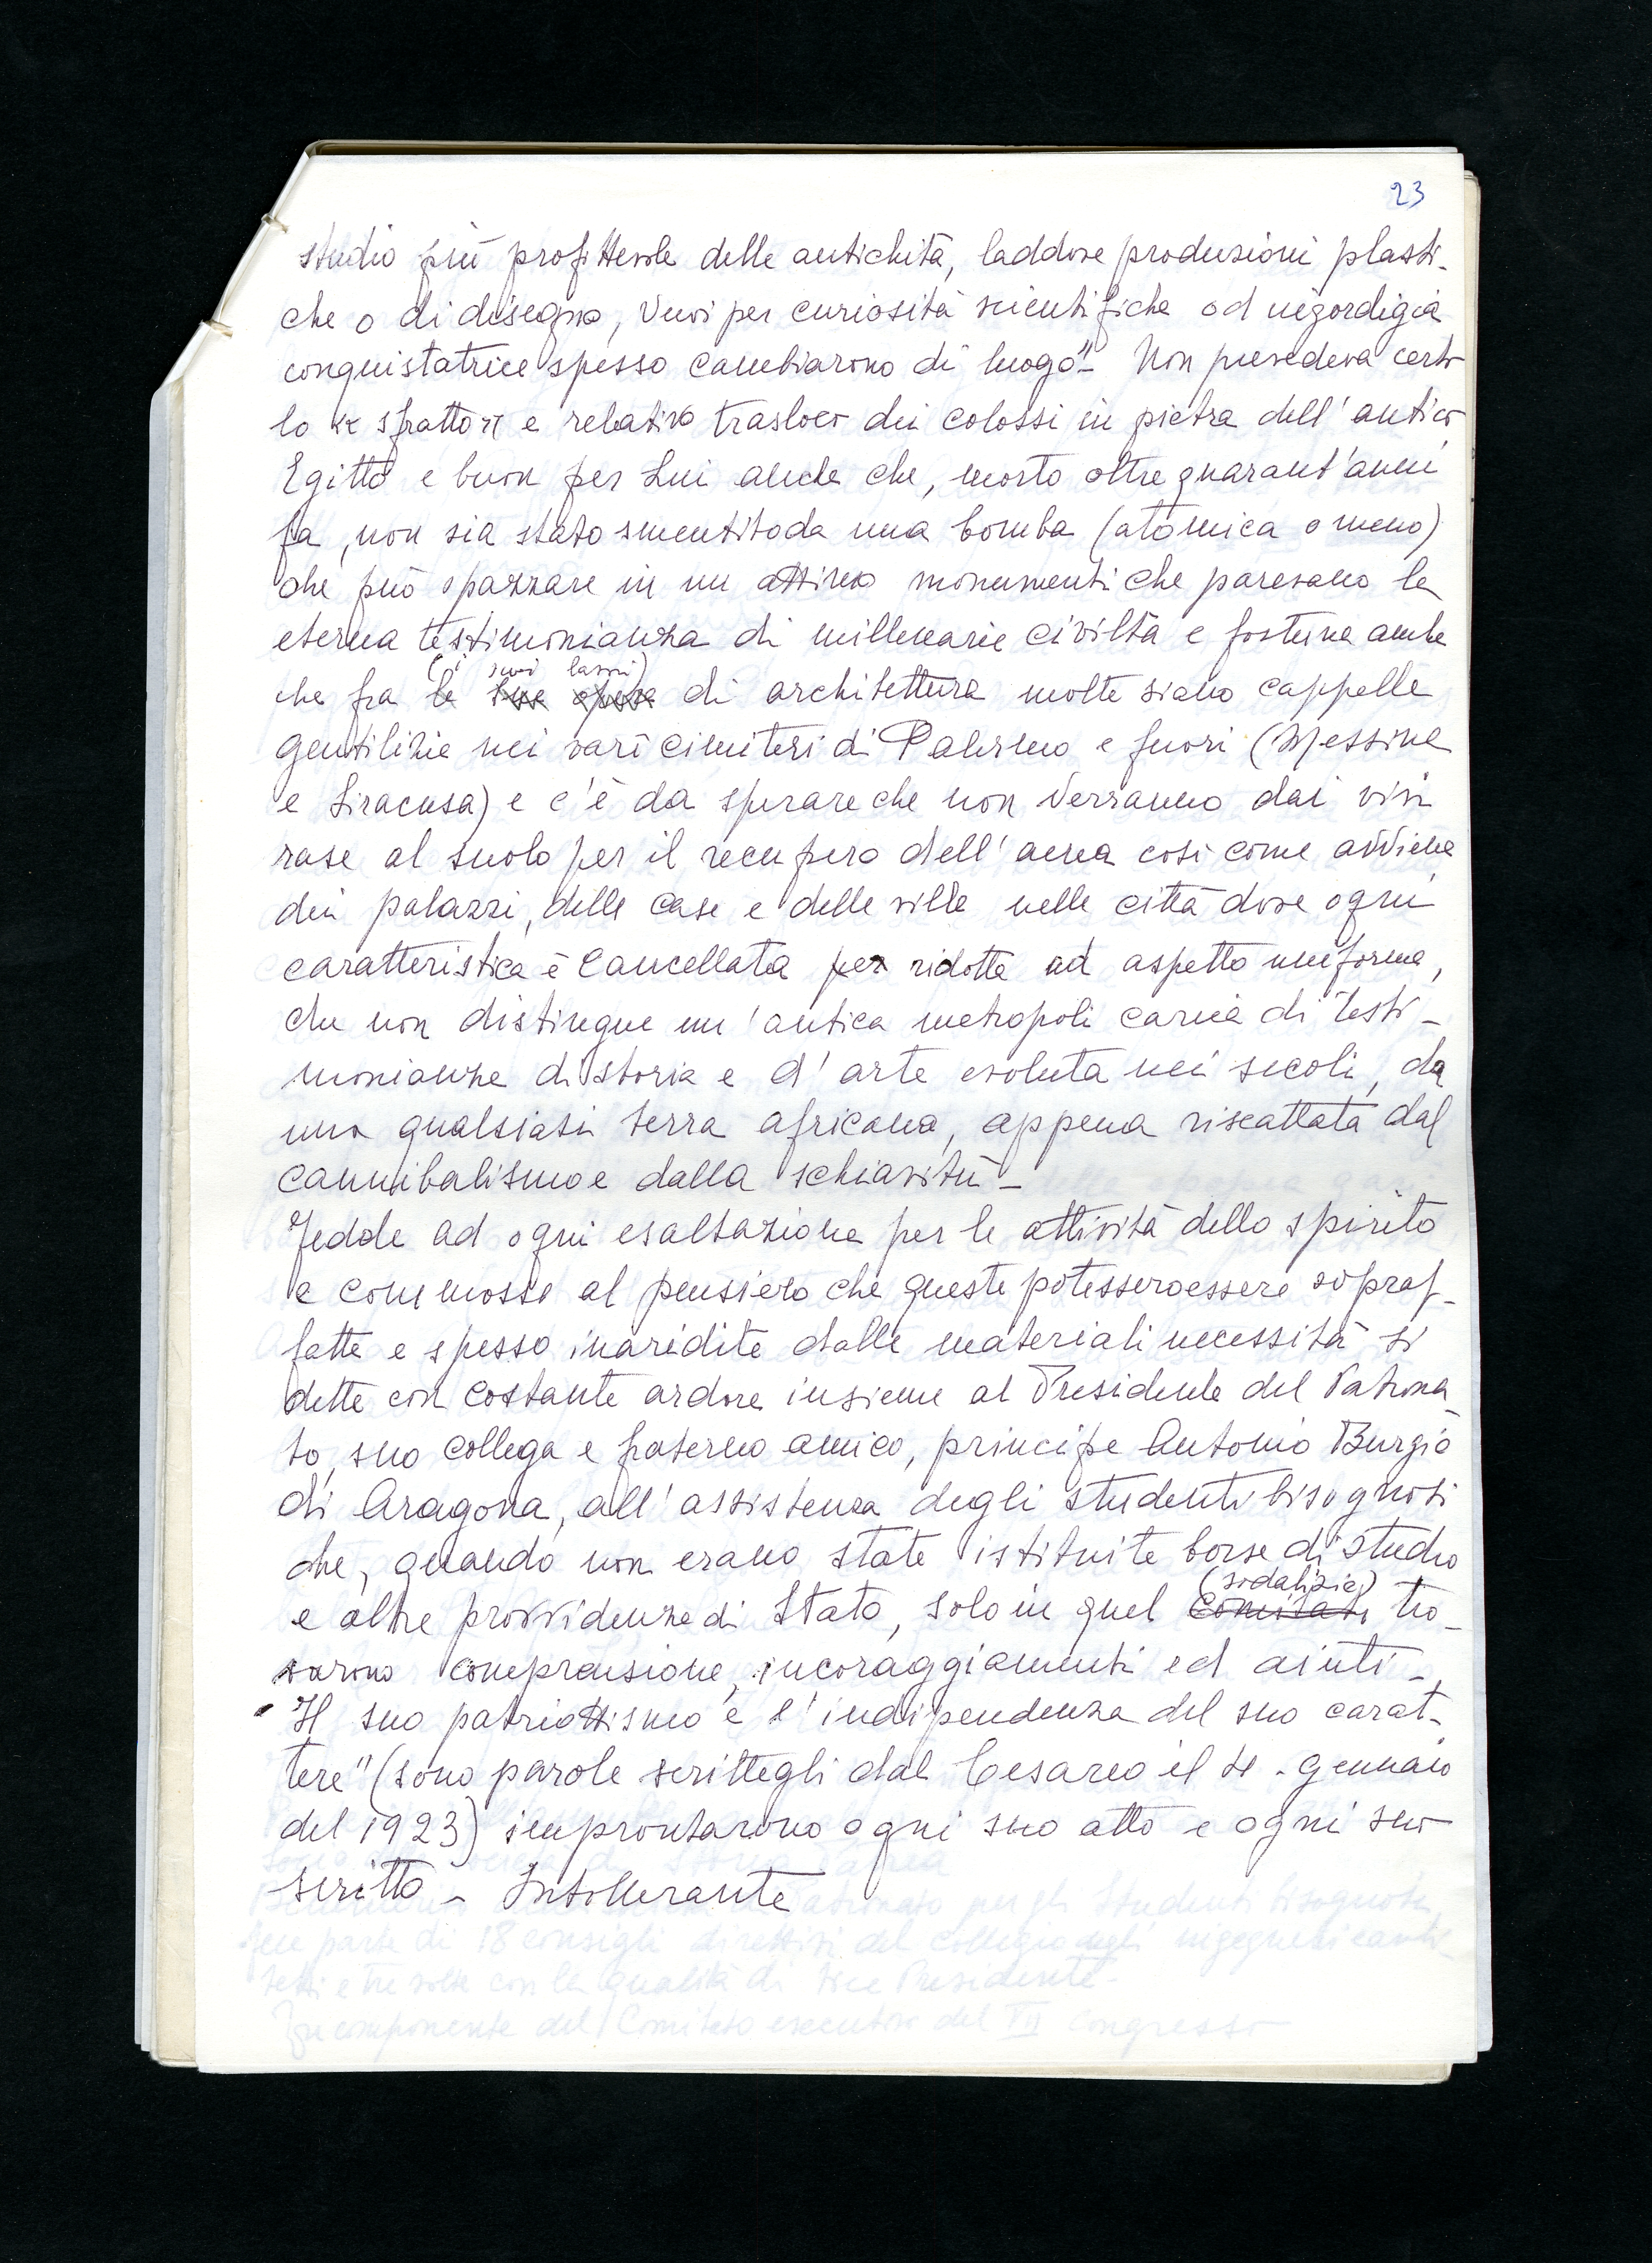 23
studio più profittevole delle antichità, laddove produzioni plasti-
che o di disegno, vuoi per curiosità scientifiche od ingordigia
conquistatrice spesso cambiarono di luogo"- Non prevedeva certo
lo << sfratto >> e relativo trasloco dei colossi in pietra dell'antico
Egitto e buon per Lui anche che, morto oltre quarant'anni
fa, non sia stato smentito da una bomba (atomica o meno)
che può spazzare in un attimo monumenti che paresano la
eterna testimonianza di millenarie civiltà e fortuna anche
(i suoi lavori)
che fra le sue opere di architettura molte siano cappelle
gentilizie nei vari cimiteri di Palermo e fuori (Messina
e Siracusa) e c'è da sperare che non verranno dai vivi
rase al suolo per il recupero dell'aerea così come avviene
dei palazzi, delle case e delle ville nelle città dove ogni
caratteristica è cancellata per ridotte ad aspetto uniforme,
che non distingue un'antica metropoli carica di testi-
monianze di storia e d'arte evoluta nei secoli, da
una qualsiasi terra africana, appena riscattata dal
cannibalismo e dalla schiavitù-
Fedele ad ogni esaltazione per le attività dello spirito
e commosso al pensiero che queste potessero essere sopraf-
fatte e spesso inaridite dalle materiali necessità si
dette con costante ardore insieme al Presidente del Patrona
to, suo collega e fraterno amico, principe Antonio Burgio
di Aragona, all'assistenza degli studenti bisognosi
che, quando non erano state istituite borse di studio
(sodalizio)
e altre provvidenze di Stato, solo in quel Comitato tro-
varono comprensione, incoraggiamenti ed aiuti-
"Il suo patriottismo e l'indipendenza del suo carat-
tere" (sono parole scrittegli dal Cesareo il 4. gennaio
del 1923) improntarono ogni suo atto e ogni suo
scritto - Intollerante